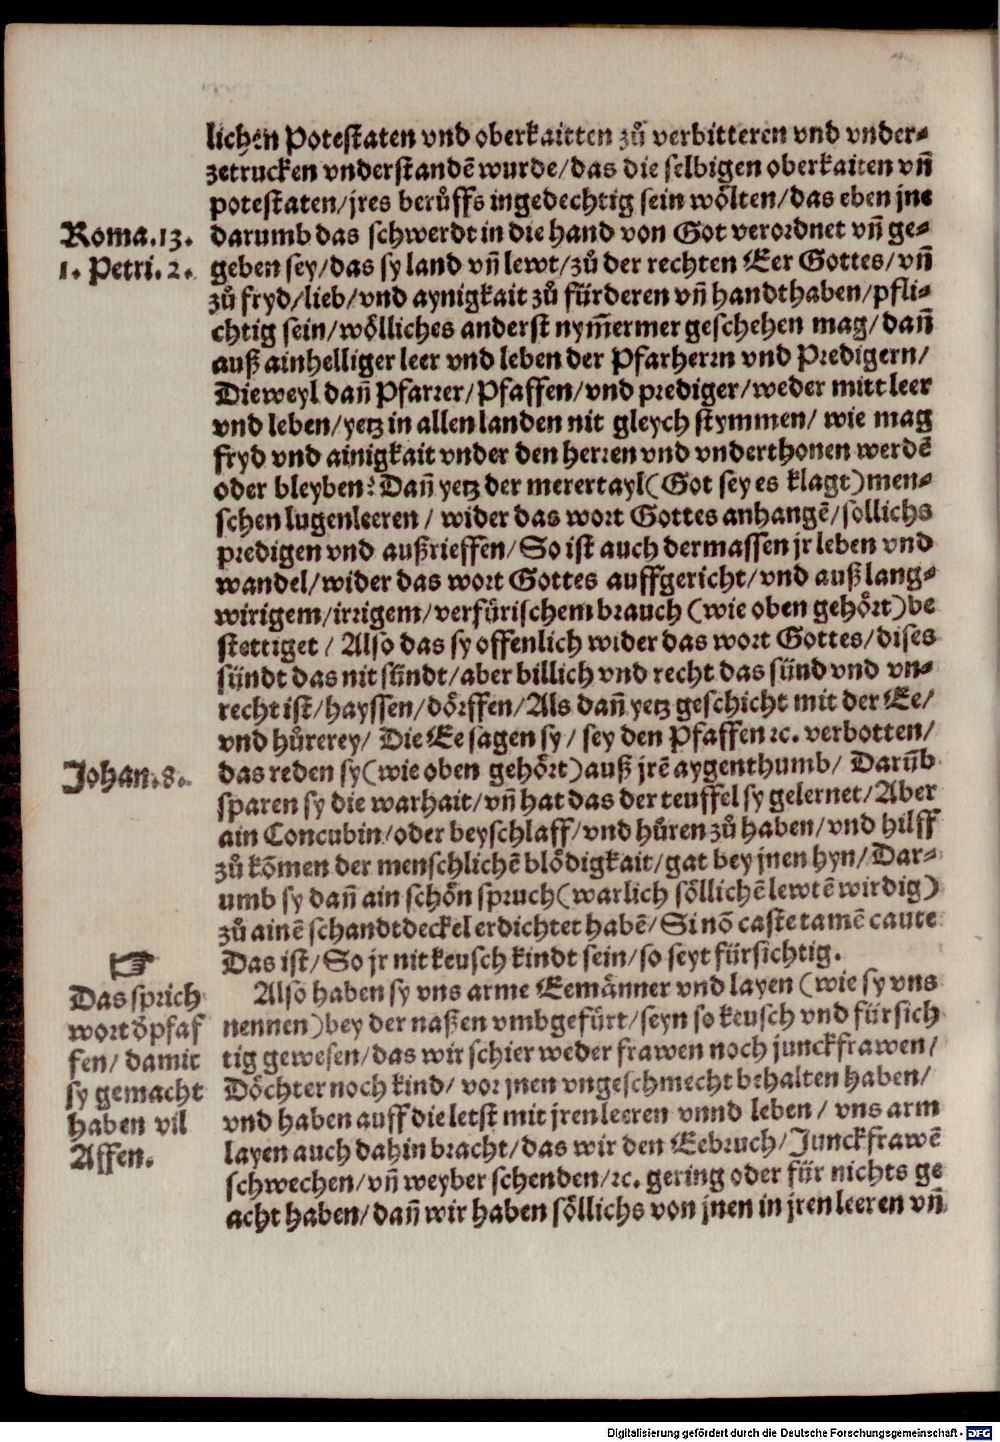 lichen Potestaten vnd oberkaitten zů verbitteren vnd vnder-
zetrucken vnderstandē wurde/das die selbigen oberkaiten vn̄
potestaten/jres berůffs ingedechtig sein wölten/das eben jne
Roma.13. darumb das schwerdt in die hand von Got verordnet vn̄ ge-
1. Petri. 2. geben sey/das sy land vn̄ lewt/zů der rechten Eer Gottes/vn̄
zů fryd/lieb/vnd aynigkait zů fürderen vn̄ handthaben/pfli-
chtig sein/wölliches anderst nym̄ermer geschehen mag/dan̄
auß ainhelliger leer vnd leben der Pfarherrn vnd Predigern/
Dieweyl dan̄ Pfarrer/Pfaffen/vnd prediger/weder mitt leer
vnd leben/yetz in allen landen nit gleych stymmen/ wie mag
fryd vnd ainigkait vnder den herren vnd vnderthonen werdē
oder bleyben? Dan̄ yetz der merertayl(Got sey es klagt)men-
schen lugenleeren / wider das wort Gottes anhangē/sollichs
predigen vnd außrieffen/So ist auch dermassen jr leben vnd
wandel/wider das wort Gottes auffgericht/vnd auß lang-
wirigem/irrigem/verfürischem brauch (wie oben gehört)be
stettiget / Also das sy offenlich wider das wort Gottes/dises
sündt das nit sündt/aber billich vnd recht das sünd vnd vn-
recht ist/hayssen/dörffen/Als dan̄ yetz geschicht mit der Ee/
vnd hůrerey/ Die Ee sagen sy/ sey den Pfaffen ꝛc. verbotten/
Johan.8. das reden sy(wie oben gehört)auß jrē aygenthumb/ Darūb
sparen sy die warhait/vn̄ hat das der teuffel sy gelernet/Aber
ain Concubin/oder beyschlaff/vnd hůren zů haben/vnd hilff
zů kōmen der menschlichē blödigkait/gat bey jnen hyn/Dar-
umb sy dan̄ ain schön spruch(warlich söllichē lewtē wirdig)
zů ainē schandtdeckel erdichtet habē/Si nō caste tamē caute
☞ Das ist/So jr nit keusch kindt sein/so seyt fürsichtig.
Das sprich Also haben sy vns arme Eemänner vnd layen (wie sy vns
wort ö pfaf nennen)bey der naßen vmbgefürt/seyn so keusch vnd fürsich
fen/ damit tig gewesen/das wir schier weder frawen noch junckfrawen/
sy gemacht Döchter noch kind/ vor jnen vngeschmecht behalten haben/
haben vil vnd haben auff die letst mit jren leeren vnnd leben / vns arm
Affen. layen auch dahin bracht/das wir den Eebruch/Junckfrawē
schwechen/vn̄ weyber schenden/ꝛc. gering oder für nichts ge
acht haben/dan̄ wir haben söllichs von jnen in jren leeren vn̄
Digitalisierung gefördert durch die Deutsche Forschungsgemeinschaft - DFG